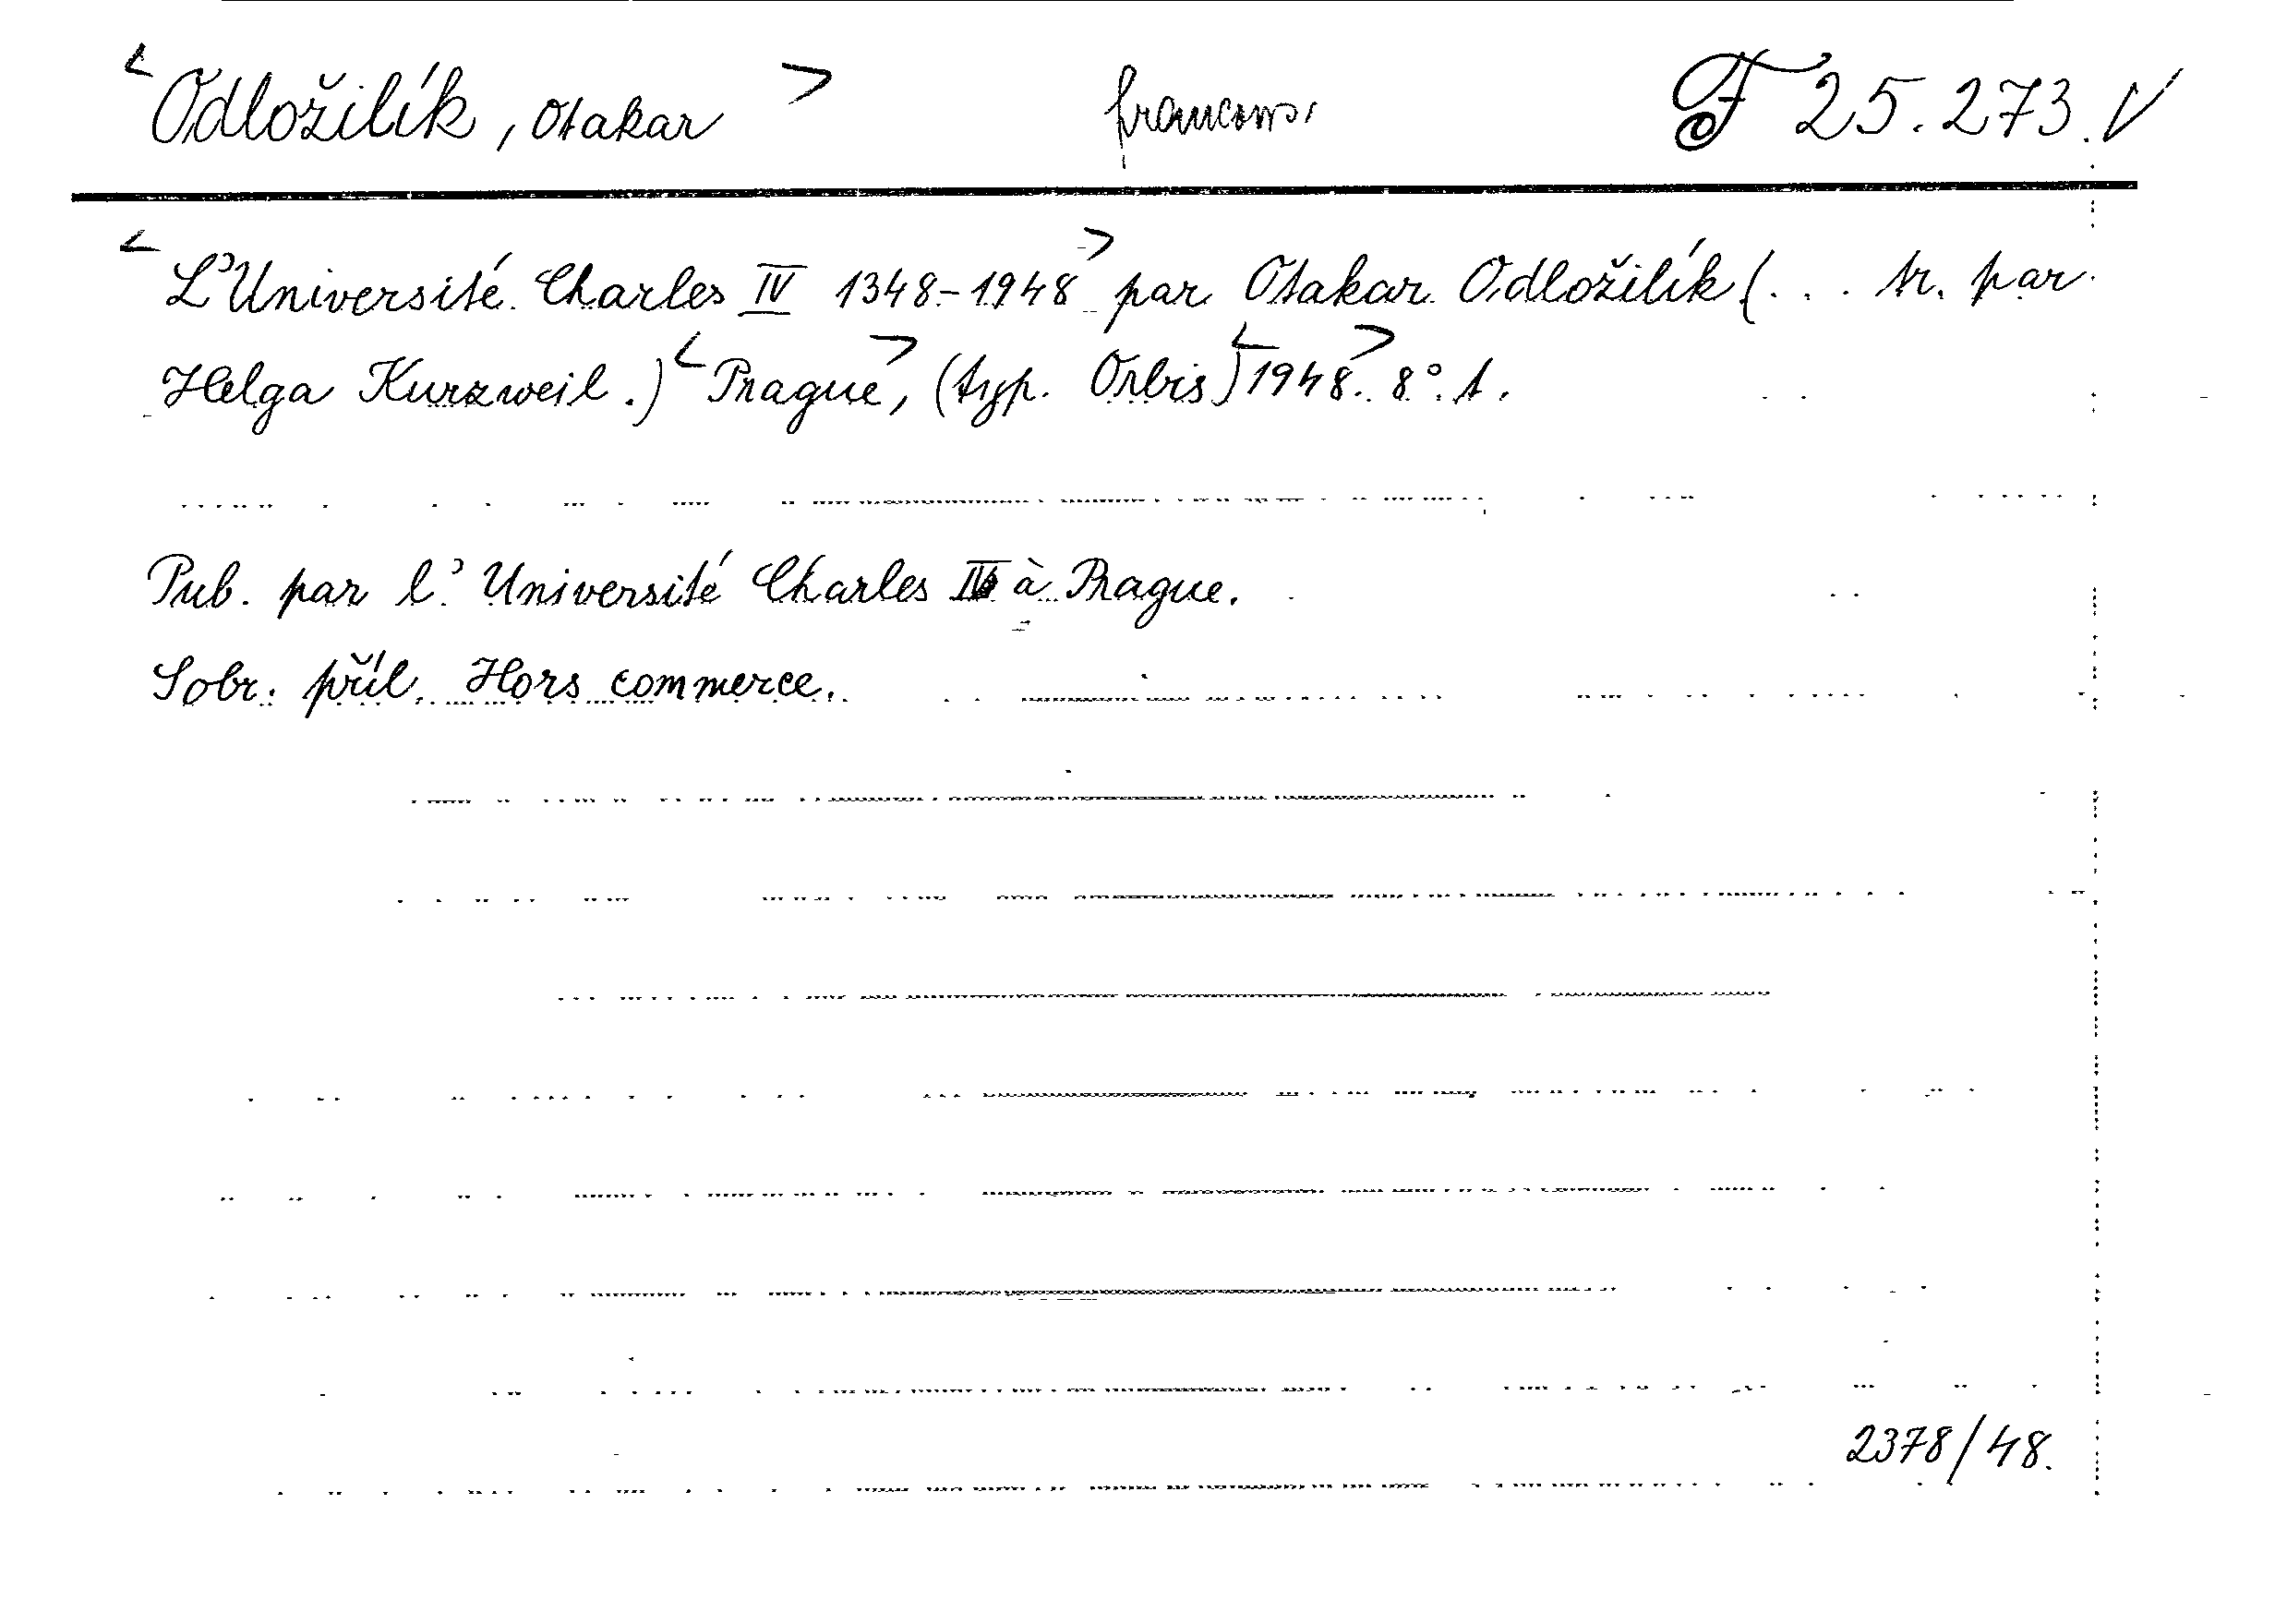 <Odložilík, Otakar> francouz. F 25.273. V
<L'Université Charles IV 1348-1948> par Otakar Odložilík (... tr. par
Helga Kurzweil.) <Prague>, (typ. Orbis) <1948>. 8°. t.
Pub. par l'Université Charles IV à Prague.
Sobr. příl. Hors commerce.
2378/48.